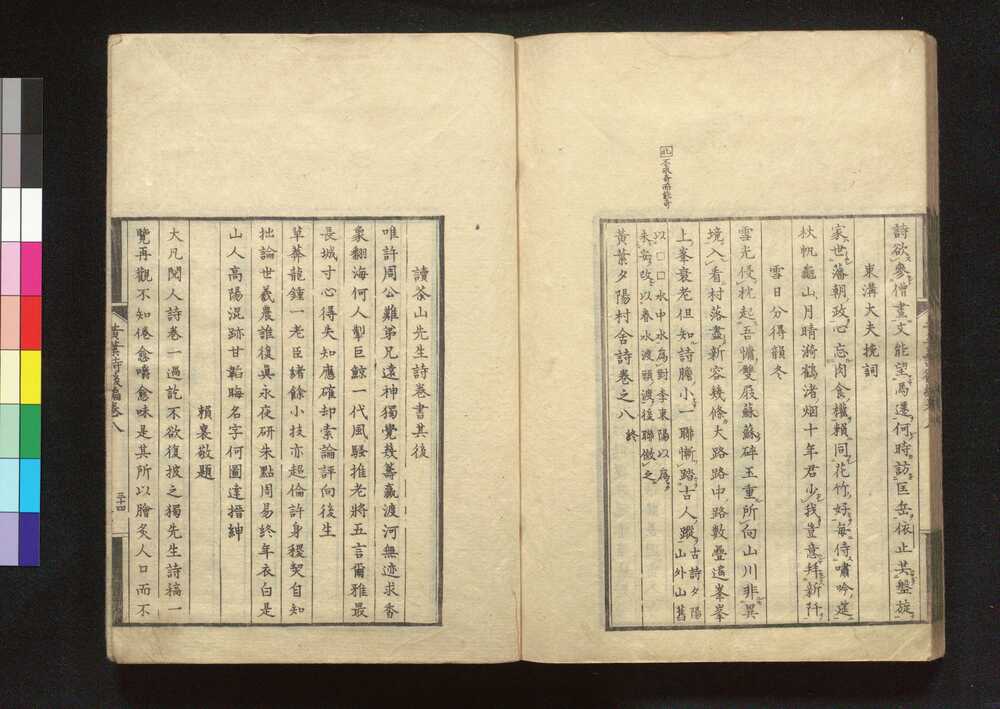 詩欲參僧畫文能望馮還何時訪匡岳依止共盤旋
東溝大夫挽詞
家世藩朝政心忘肉食權賴同花竹好每侍嘯吟筵
杖帆龜山月晴漪鶴渚烟十年君少我豈意拜新阡
雪日分得韻冬
雪光侵枕起吾慵雙屐蘇蘇碎玉重所向山川非異
境入看村落盡新容幾條大路路中路數疊遙峯峯
上峯衰老但知詩膽小一聯慚踏古人蹤
古詩夕陽山外山舊
以□□□水中水為對李東陽以為
未安改以春水渡頭渡後聯傚之
黃葉夕陽村舍詩卷之八 終
讀茶山先生詩卷書其後
唯許周公難弟兄遠神獨覺幾籌贏渡河無迹求香
象翻海何人掣巨鯨一代風騷推老將五言爾雅最
長城寸心得失知應確却索論評向後生
草莽龍鍾一老臣緒餘小技亦超倫許身稷契自知
拙論世羲農誰復真永夜研朱點周易終年衣白是
山人高陽混跡甘韜晦名字何圖達搢紳
賴襄敬題
大凡閱人詩卷一過訖不欲復披之獨先生詩稿一
覽再觀不知倦愈嚼愈味是其所以膾炙人口而不
黃葉詩後編卷八
三十四